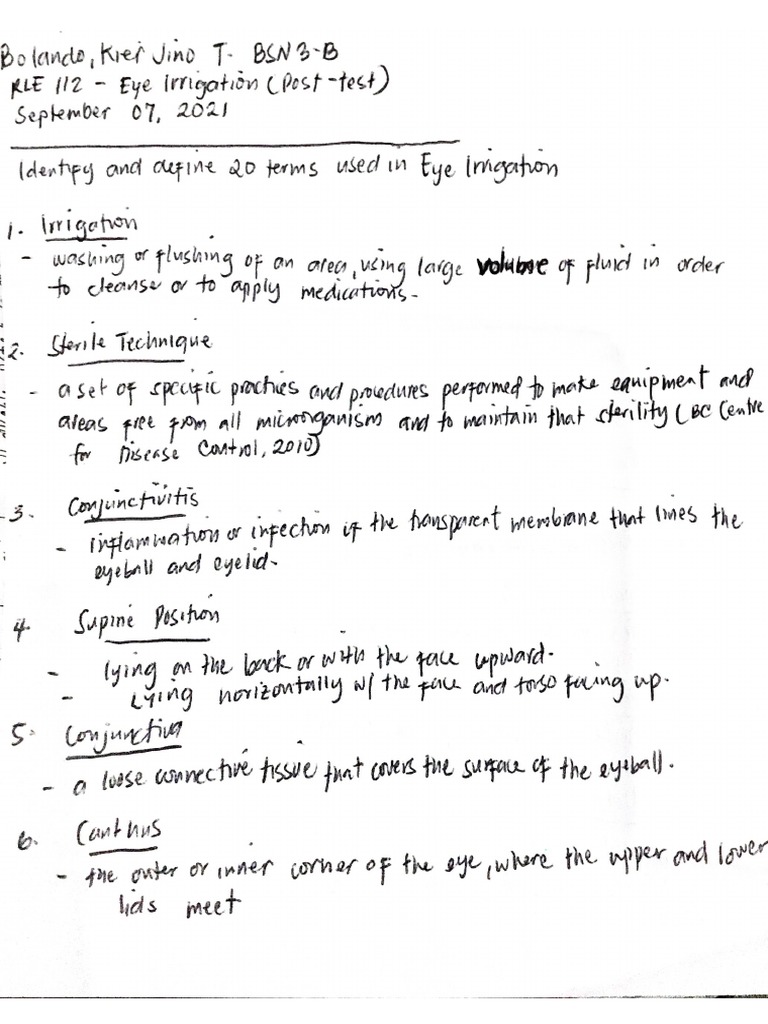 Bolando, Kier Jino T. BSN 3-B
RLE 112 - Eye Irrigation (Post-test)
September 07, 2021
Identify and define 20 terms used in Eye Irrigation
1. Irrigation
- washing or flushing of an area, using large volume of fluid in order
to cleanse or to apply medications.
2. Sterile Technique
- a set of specific practies and procedures performed to make equipment and
areas free from all microorganism and to maintain that sterility (BC Centre
for Disease Control, 2010)
3. Conjunctivitis
- inflammation or infection if the transparent membrane that lines the
eyeball and eyelid.
4 Supine Position
- lying on the back or with the face upward.
- Lying horizontally w/ the face and torso facing up.
5. Conjunctiva
- a loose connective tissue that covers the surface of the eyeball.
6. Canthus
- the outer or inner corner of the eye, where the upper and lower
lids meet